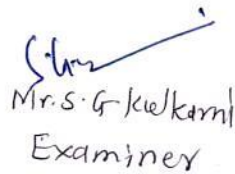 Mr. S. G. Kulkarni
Examiner